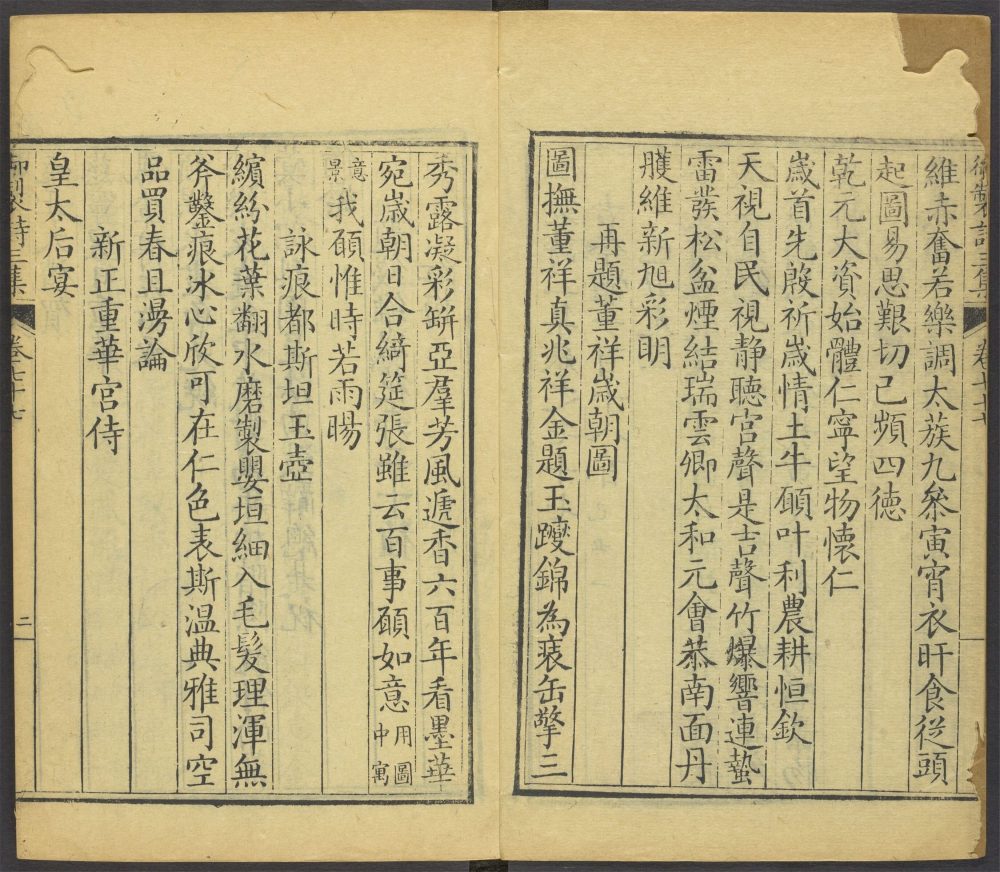 御製詩三集 卷七十七
維赤奮若樂調太蔟九叅寅宵衣旰食從頭
起圖易思艱切己頻四德
乾元大資始體仁寧望物懷仁
歲首先殷祈歲情土牛願叶利農耕恒欽
天視自民視静聽宫聲是吉聲竹爆響連蟄
雷發松盆煙結瑞雲卿太和元會恭南面丹
雘維新旭彩明
再題董祥歲朝圖
圖撫董祥真兆祥金題玉躞錦為褱缶擎三
秀露凝彩缾亞羣芳風遞香六百年看墨華
宛歲朝日合綺筵張雖云百事願如意用圖中寓
意景我願惟時若雨暘
詠痕都斯坦玉壺
繽紛花葉翻水磨製嬰垣細入毛髮理渾無
斧鑿痕冰心欣可在仁色表斯温典雅司空
品買春且漫論
新正重華宫侍
皇太后宴
御製詩三集 卷七十七 二